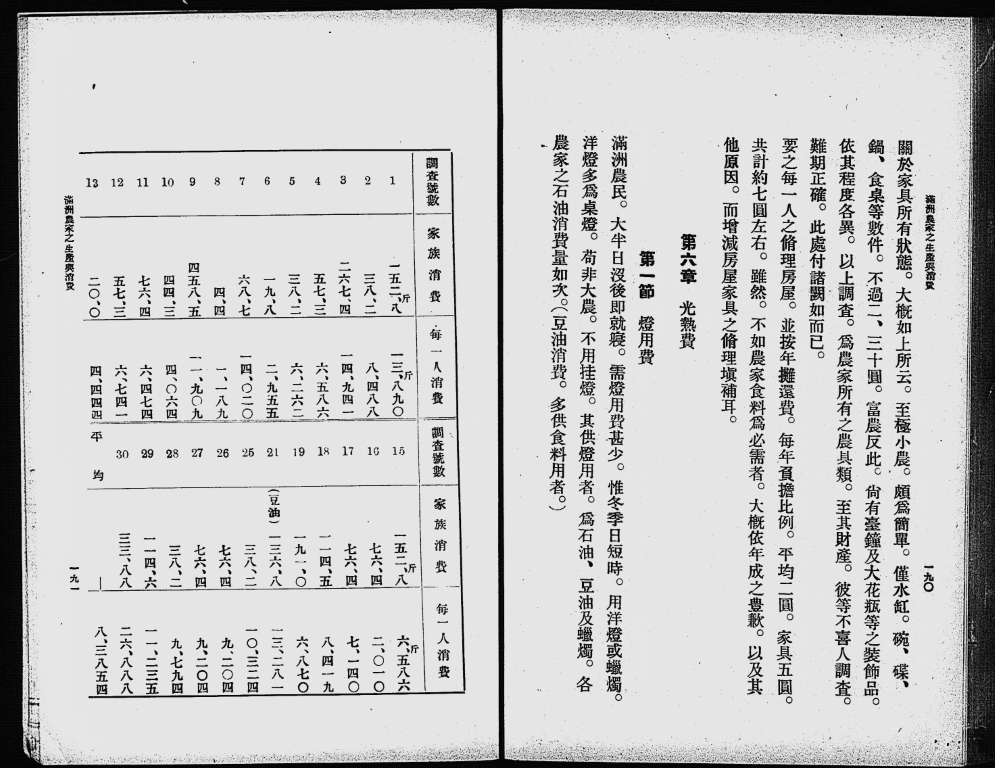 滿洲農家之生產與消費
一九〇
關於家具所有狀態。大槪如上所云。至極小農。頗爲簡單。僅水缸。碗、碟、
鍋、食桌等數件。不過二、三十圓。富農反此。尙有臺鐘及大花瓶等之裝飾品。
依其程度各異。以上調査。爲農家所有之農具類。至其財產。彼等不喜人調査。
難期正確。此處付諸闕如而已。
要之每一人之脩理房屋。並按年攤還費。每年負擔比例。平均二圓。家具五圓。
共計約七圓左右。雖然。不如農家食料爲必需者。大槪依年成之豊歉。以及其
他原因。而增減房屋家具之脩理塡補耳。
第六章 光熱費
第一節 燈用費
滿洲農民。大半日沒後即就寢。需燈用費甚少。惟冬季日短時。用洋燈或蠟燭。
洋燈多爲桌燈。苟非大農。不用挂燈。其供燈用者。爲石油、豆油及蠟燭。各
農家之石油消費量如次。(豆油消費。多供食料用者。)
調査號數 家族消費 每一人消費
1 一五二、八斤 一三、八九〇斤
2 三八、二 八、四八八
3 二六七、四 一四、九四一
4 五七、三 六、五八六
5 三八、二 六、二六二
6 一九、八 二、九五五
7 六八、七 一四、〇二〇
8 四、四 一、一八九
9 四五八、五 一一、九〇九
10 四四、三 四、〇六四
11 七六、四 六、四七四
12 五七、三 六、七四一
13 二〇、〇 四、四四四
調査號數 家族消費 每一人消費
15 一五二、八斤 六、五八六斤
16 七六、四 二、〇一〇
17 七六、四 七、一四〇
18 一一四、五 八、四一九
19 一九一、〇 六、八七〇
21 (豆油)一三六、八 一三、二八一
25 三八、二 一〇、三二四
26 七六、四 九、二〇四
27 七六、四 九、二〇四
28 三八、二 九、七九四
29 一一四、六 一一、二三五
30 三三、八八 二六、八八八
平均 — 八、三八五四
滿洲農家之生產與消費
一九一